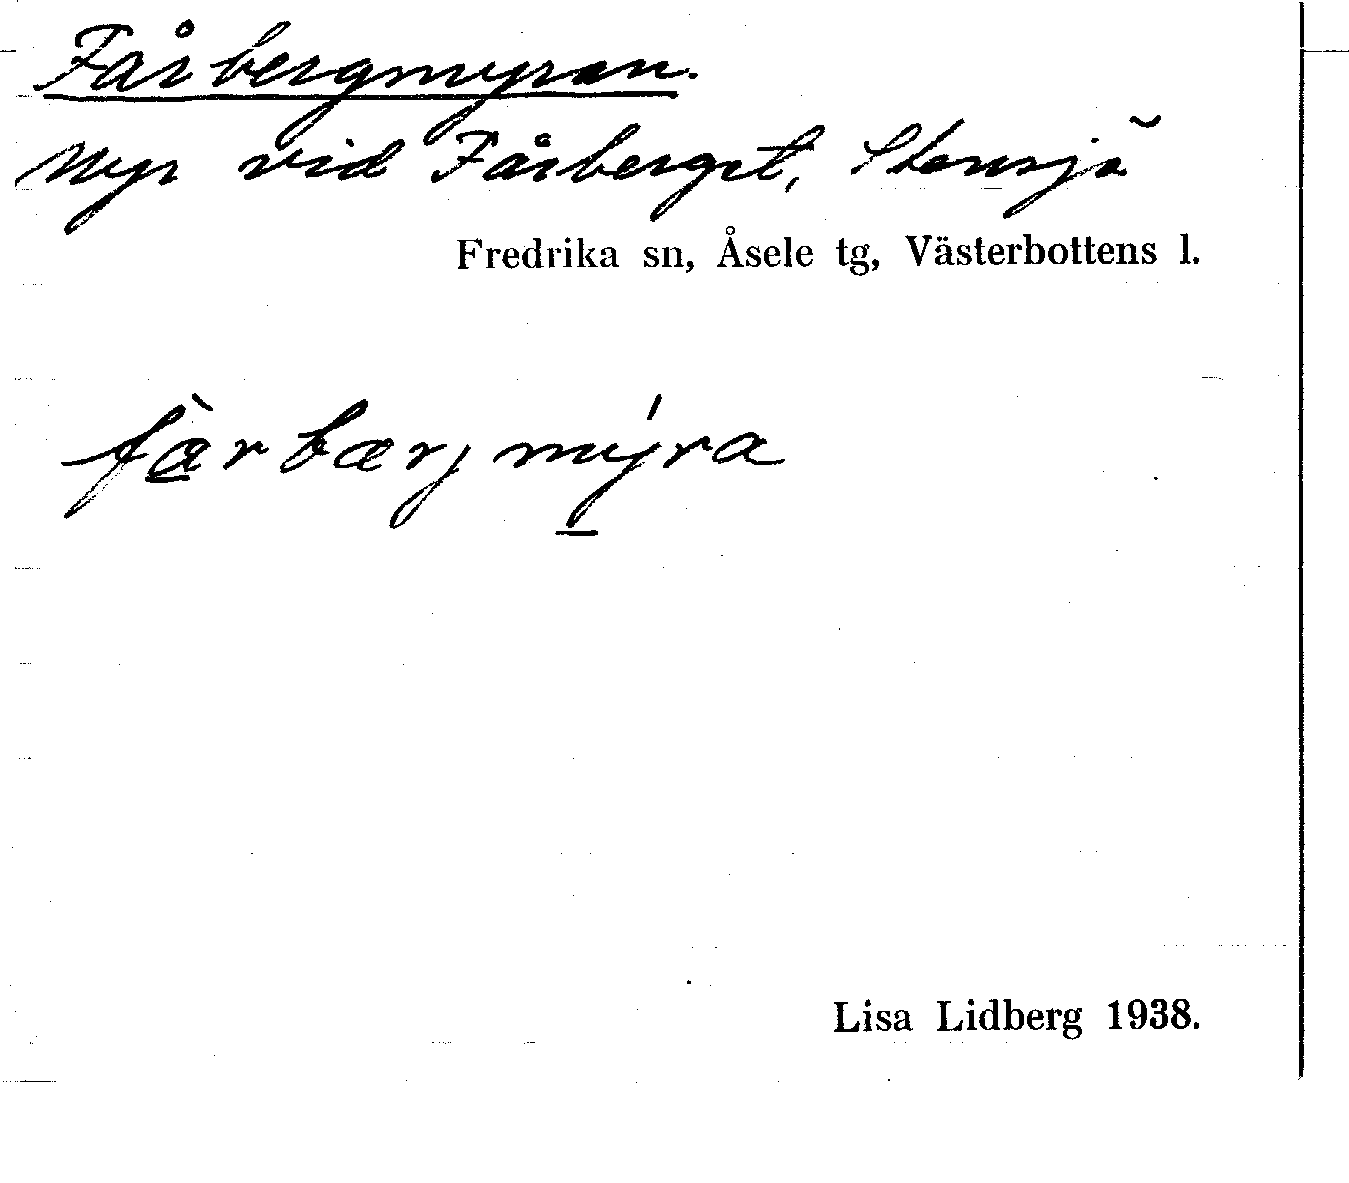 Fårbergmyran.
Myr vid Fårberget, Stensjö
Fredrika sn, Åsele tg, Västerbottens l.
fàrbærjmýra
Lisa Lidberg 1938.